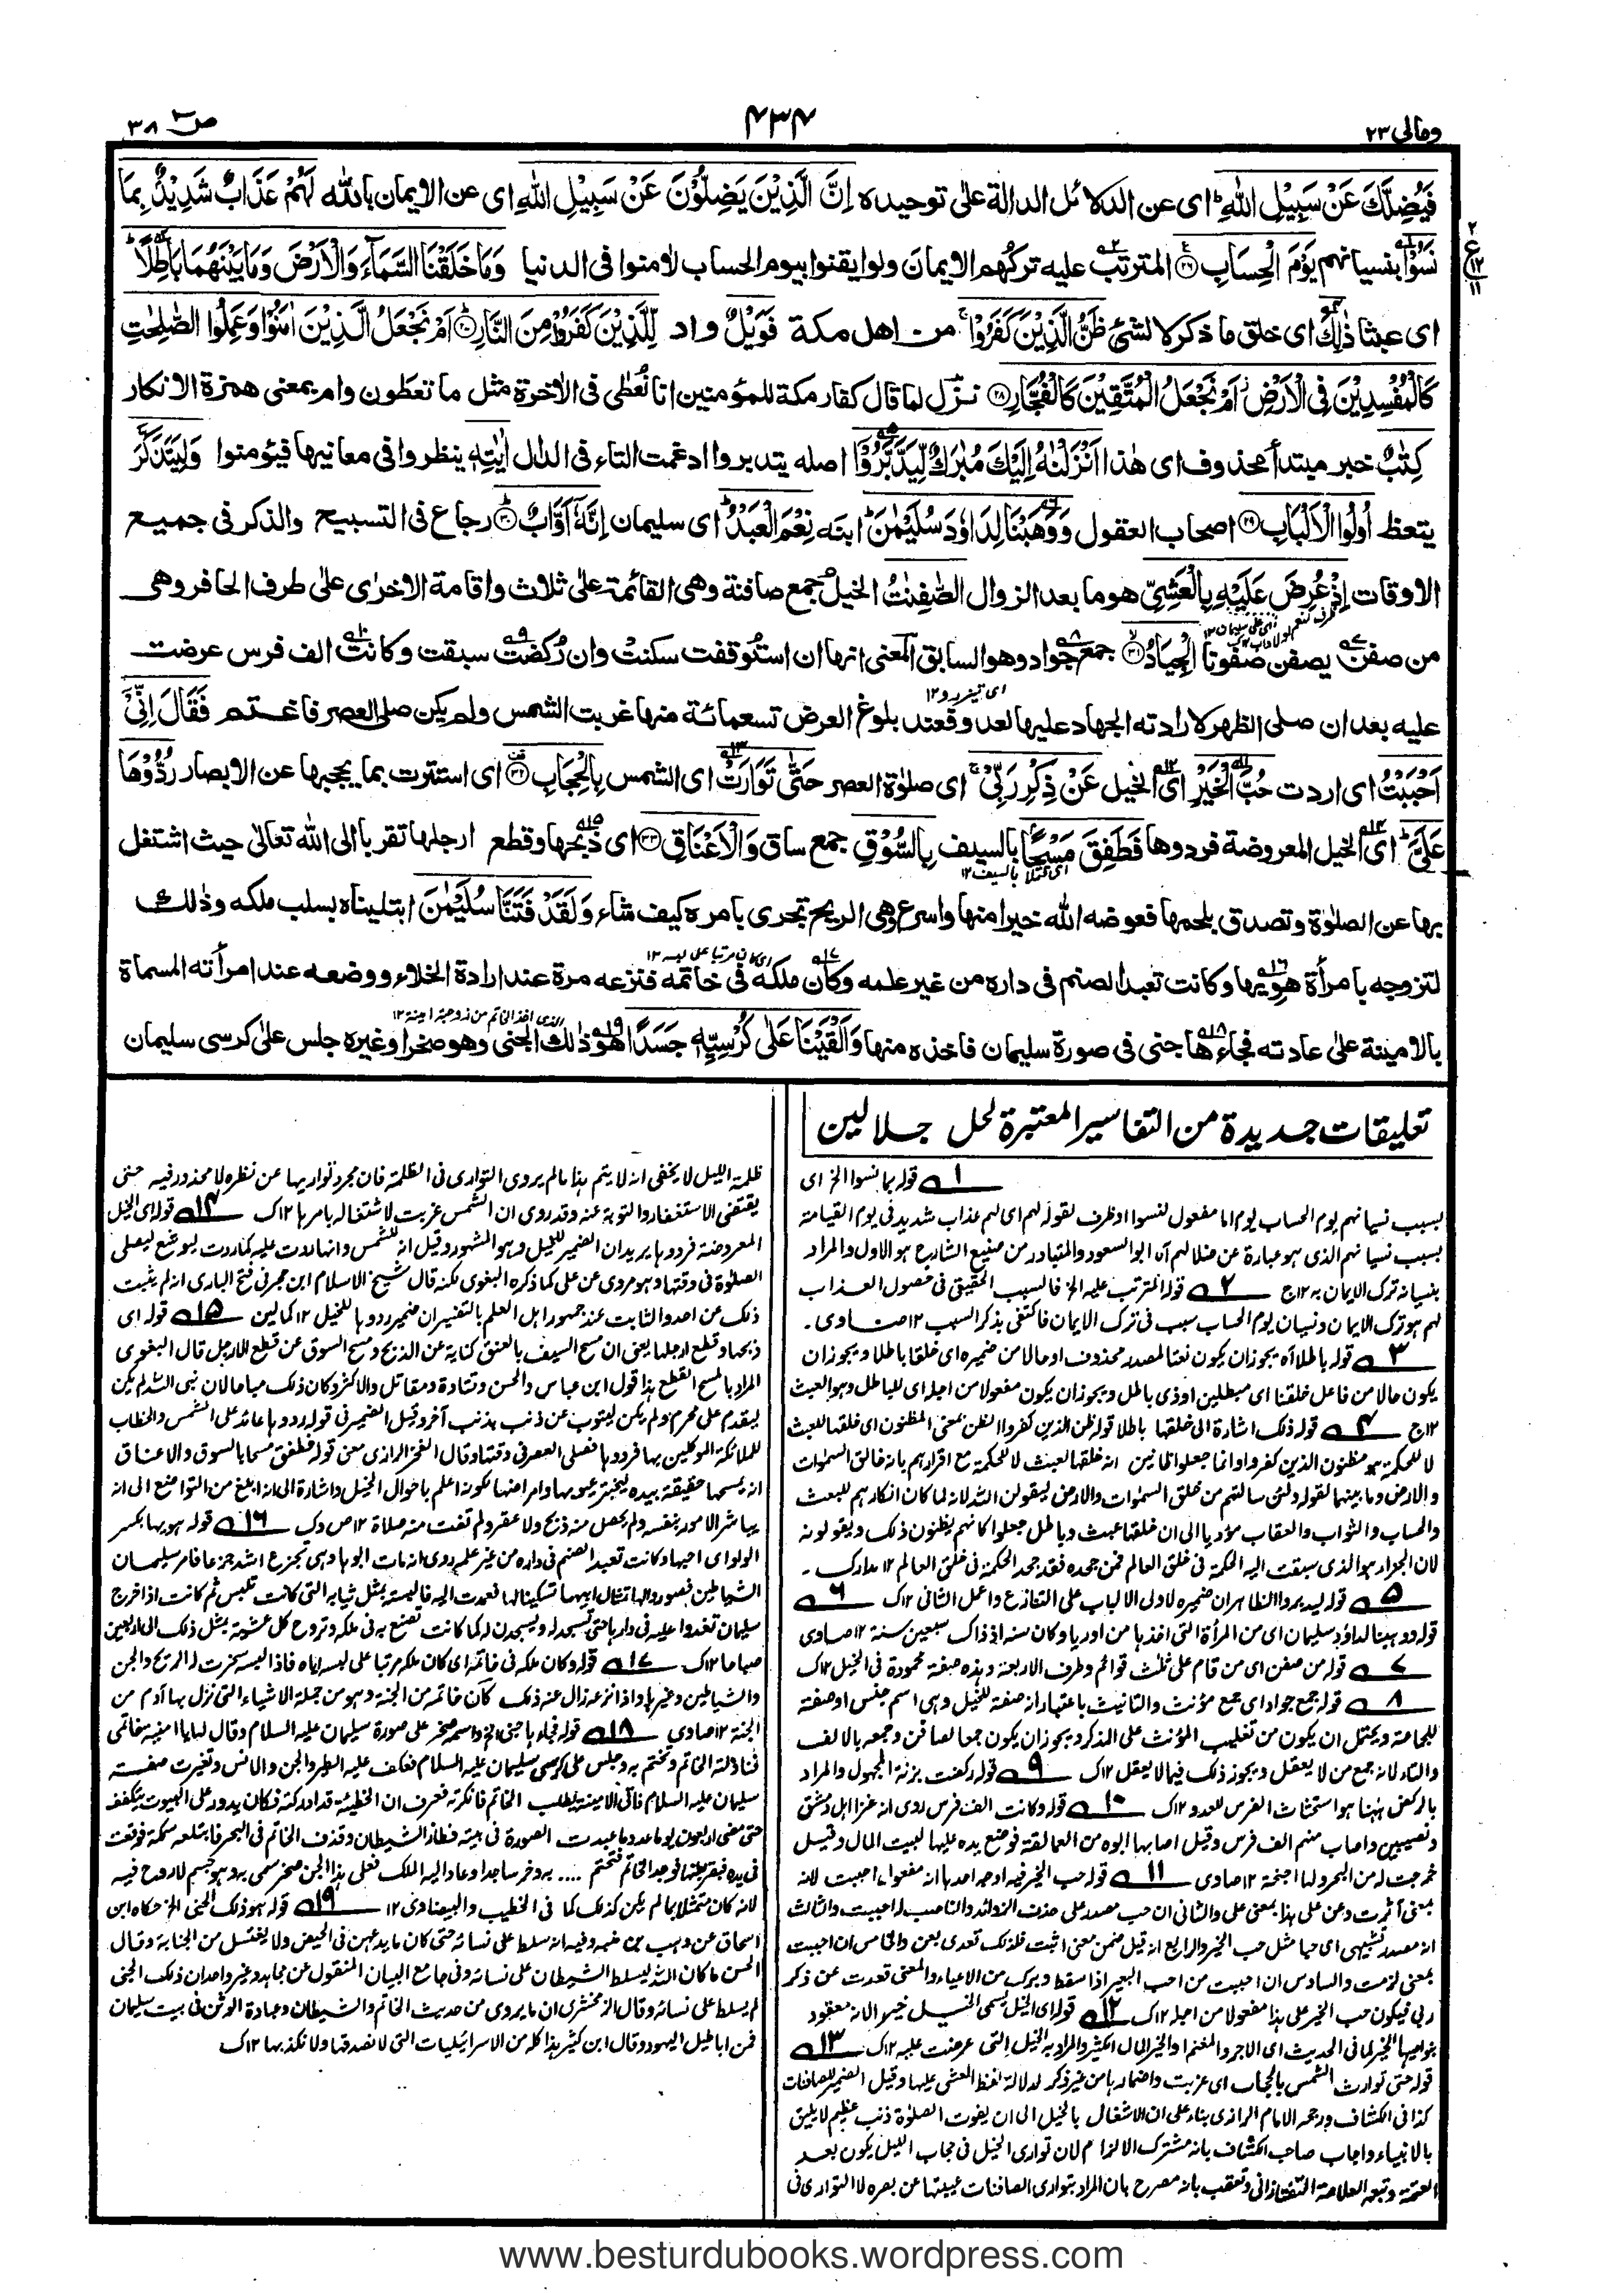 ومالی ٢٣
٤٣٤
ص ٣٨
فَيُضِلَّكَ عَنْ سَبِيْلِ اللّٰهِ ای عن الدلائل الدالة علی توحیده اِنَّ الَّذِيْنَ يَضِلُّوْنَ عَنْ سَبِيْلِ اللّٰهِ ای عن الایمان بالله لَهُمْ عَذَابٌ شَدِيْدٌۢ بِمَا
نَسُوْا بنسیانهم يَوْمَ الْحِسَابِ ٢٦ المترتب علیه ترکهم الایمان ولو ایقنوا بیوم الحساب لاٰمنوا فی الدنیا وَمَا خَلَقْنَا السَّمَآءَ وَالْاَرْضَ وَمَا بَيْنَهُمَا بَاطِلًا
ای عبثا ذٰلِكَ ای خلق ما ذکر لا لشئ ظَنُّ الَّذِيْنَ كَفَرُوْا من اهل مكة فَوَيْلٌ واد لِّلَّذِيْنَ كَفَرُوْا مِنَ النَّارِ ٢٧ اَمْ نَجْعَلُ الَّذِيْنَ اٰمَنُوْا وَعَمِلُوا الصّٰلِحٰتِ
كَالْمُفْسِدِيْنَ فِی الْاَرْضِ اَمْ نَجْعَلُ الْمُتَّقِيْنَ كَالْفُجَّارِ ٢٨ نزل لما قال کفار مكة للمؤمنین انا نُعْطٰی فی الاٰخرة مثل ما تعطون وام بمعنی همزة الانکار
كِتٰبٌ خبر مبتدأ محذوف ای هٰذا اَنْزَلْنٰهُ اِلَيْكَ مُبٰرَكٌ لِّيَدَّبَّرُوْٓا اصله یتدبروا ادغمت التاء فی الدال اٰيٰتِهٖ ینظروا فی معانیها فیؤمنوا وَلِيَتَذَكَّرَ
یتعظ اُولُوا الْاَلْبَابِ ٢٩ اصحاب العقول وَوَهَبْنَا لِدَاوٗدَ سُلَيْمٰنَ ابنه نِعْمَ الْعَبْدُ ای سلیمان اِنَّهٗٓ اَوَّابٌ ٣٠ رجاع فی التسبیح والذکر فی جمیع
الاوقات اِذْ عُرِضَ عَلَيْهِ بِالْعَشِیِّ هو ما بعد الزوال الصّٰفِنٰتُ الخیل جمع صافنة وهی القائمة علی ثلاث واقامة الاخری علی طرف الحافر وهی
من صفن یصفن صفونا الْجِيَادُ ٣١ جمع جواد وهو السابق المعنی انها ان استُوقفت سکنت وان رُکضت سبقت وکانت الف فرس عرضت
علیه بعد ان صلی الظهر لارادته الجهاد علیها لعدو فعند بلوغ العرض تسعمائة منها غربت الشمس ولم یکن صلی العصر فاغتم فَقَالَ اِنِّیْٓ
اَحْبَبْتُ ای اردت حُبَّ الْخَيْرِ ای الخیل عَنْ ذِكْرِ رَبِّیْ ای صلوٰة العصر حَتّٰی تَوَارَتْ ای الشمس بِالْحِجَابِ ٣٢ ای استترت بما یحجبها عن الابصار رُدُّوْهَا
عَلَیَّ ای الخیل المعروضة فردوها فَطَفِقَ مَسْحًا بالسیف بِالسُّوْقِ جمع ساق وَالْاَعْنَاقِ ٣٣ ای ذبحها وقطع ارجلها تقربا الی الله تعالی حیث اشتغل
بها عن الصلوٰة وتصدق بلحمها فعوضه الله خیرا منها واسرع وهی الریح تجری بامره کیف شاء وَلَقَدْ فَتَنَّا سُلَيْمٰنَ ابتلیناه بسلب ملکه وذٰلك
لتزوجه بامرأة هویها وکانت تعبد الصنم فی داره من غیر علمه وکان ملکه فی خاتمه فنزعه مرة عند ارادة الخلاء ووضعه عند امرأته المسماة
بالامینة علی عادته فجاءها جنی فی صورة سلیمان فاخذه منها وَاَلْقَيْنَا عَلٰی كُرْسِيِّهٖ جَسَدًا هو ذٰلك الجنی وهو صخر او غیره جلس علی کرسی سلیمان
تعلیقات جدیدة من التفاسیر المعتبرة لحل جلالین
١ قوله بما نسوا الخ ای
بسبب نسیانهم یوم الحساب یوم اما مفعول لنسوا او ظرف لقوله لهم ای لهم عذاب شدید فی یوم القیامة
بسبب نسیانهم الذی هو عبارة عن ضلالهم آه ابو السعود والمتبادر من صنیع الشارح هو الاول والمراد
بنسیانه ترک الایمان به ١٢ ج ٢ قوله المترتب علیه الخ فالسبب الحقیقی فی حصول العذاب
لهم هو ترک الایمان ونسیان یوم الحساب سبب فی ترک الایمان فاکتفی بذکر السبب ١٢ صاوی.
٣ قوله باطلا آه یجوز ان یکون نعتا لمصدر محذوف او حالا من ضمیره ای خلقا باطلا ویجوز ان
یکون حالا من فاعل خلقنا ای مبطلین او ذوی باطل ویجوز ان یکون مفعولا من اجله ای للباطل وهو العبث
١٢ ج ٤ قوله ذلک اشارة الی خلقها باطلا قوله ظن الذین کفروا الظن بمعنی المظنون ای خلقها للعبث
لا للحکمة هو مظنون الذین کفروا وانما جعلوا ظانین انه خلقها للعبث لا للحکمة مع اقرارهم بانه خالق السموات
والارض وما بینهما لقوله ولئن سالتهم من خلق السموات والارض لیقولن الله لانه لما کان انکارهم للبعث
والحساب والثواب والعقاب مؤدیا الی ان خلقها عبث وباطل جعلوا کانهم یظنون ذلک ویقولونه
لان الجزاء هو الذی سبقت الیه الحکمة فی خلق العالم فمن جحده فقد جحد الحکمة فی خلق العالم ١٢ مدارک.
٥ قوله لیدبروا الظاهر ان ضمیره لاولی الالباب علی التنازع واعمل الثانی ١٢ ک ٦
قوله ووهبنا لداؤد سلیمان ای من المرأة التی اخذها من اوریا وکان سنه اذ ذاک سبعین سنة ١٢ صاوی
٧ قوله من صفن ای من قام علی ثلث قوائم وطرف الاربعة وهذه صفة محمودة فی الخیل ١٢ ک
٨ قوله جمع جواد ای جمع مؤنث والتانیث باعتبار انه صفة للخیل وهی اسم جنس او صفة
للجماعة ویحتمل ان یکون من تغلیب المؤنث علی المذکر ویجوز ان یکون جمعا لصافن وجمعه بالالف
والتاء لانه جمع من لا یعقل ویجوز ذلک فیما لا یعقل ١٢ ک ٩ قوله رکضت بزنة المجهول والمراد
بالرکض ههنا هو استحثاث الفرس للعدو ١٢ ک ١٠ قوله وکانت الف فرس روی انه غزا اهل دمشق
ونصیبین واصاب منهم الف فرس وقیل اصابها ابوه من العمالقة فوضع یده علیها لبیت المال وقیل
خرجت له من البحر ولها اجنحة ١٢ صاوی ١١ قوله حب الخیر فیه اوجه احدها انه مفعول احببت لانه
بمعنی آثرت وعن علی هذا بمعنی علی والثانی ان حب مصدر علی حذف الزوائد والناصب له احببت والثالث
انه مصدر تشبیهی ای حبا مثل حب الخیر والرابع انه قیل ضمن معنی اثبت فلذلک تعدی بعن والخامس ان احببت
بمعنی لزمت والسادس ان احببت من احب البعیر اذا سقط وبرک من الاعیاء والمعنی قعدت عن ذکر
ربی فیکون حب الخیر علی هذا مفعولا من اجله ١٢ ک ١٢ قوله ای الخیل یسمی الخیل خیرا لانه معقود
بنواصیها الخیر کما فی الحدیث ای الاجر والمغنم او الخیر المال الکثیر والمراد به الخیل التی عرضت علیه ١٢ ک ١٣
قوله حتی توارت الشمس بالحجاب ای غربت واضمارها من غیر ذکر لدلالة لفظ العشی علیها وقیل الضمیر للصافنات
کذا فی الکشاف ورجحه الامام الرازی بناء علی ان الاشتغال بالخیل الی ان یفوت الصلوة ذنب عظیم لا یلیق
بالانبیاء واجاب صاحب الکشاف بانه مشترک الالزام لان تواری الخیل فی حجاب اللیل یکون بعد
العتمة وتبعه العلامة التفتازانی وتعقب بانه مصرح بان المراد بتواری الصافنات غیبتها عن بصره لا التواری فی
ظلمة اللیل لا یخفی انه لا یتم هذا ما لم یروی التواری فی الظلمة فان مجرد تواریها عن نظره لا محذور فیه حتی
یقتضی الاستغفار والتوبة عنه وقد روی ان الشمس غربت لاشتغاله بامرها ١٢ ک ١٤ قوله ای الخیل
المعروضة فردوها یرید ان الضمیر للخیل وهو المشهور وقیل انه للشمس وانها ردت علیه کما ردت لیوشع لیصلی
الصلوة فی وقتها وهو مروی عن علی کما ذکره البغوی لکنه قال شیخ الاسلام ابن حجر فی فتح الباری انه لم یثبت
ذلک عن احد والثابت عند جمهور اهل العلم بالتفسیر ان ضمیر ردوها للخیل ١٢ کمالین ١٥ قوله ای
ذبحها وقطع ارجلها یعنی ان مسح السیف بالعنق کنایة عن الذبح ومسح السوق عن قطع الارجل قال البغوی
المراد بالمسح القطع هذا قول ابن عباس والحسن وقتادة ومقاتل والاکثر وکان ذلک مباحا لان نبی الله لم یکن
لیقدم علی محرم ولم یکن لیتوب عن ذنب بذنب آخر وقیل الضمیر فی قوله ردوها عائد علی الشمس والخطاب
للملائکة الموکلین بها فردوها فصلی العصر فی وقتها وقال الفخر الرازی معنی قوله فطفق مسحا بالسوق والاعناق
انه یمسحها حقیقة بیده لیختبر عیوبها وامراضها لکونه اعلم باحوال الخیل واشارة الی انه ابلغ من التواضع الی انه
یباشر الامور بنفسه ولم یحصل منه ذبح ولا عقر ولم تفت منه صلاة ١٢ ص وک ١٦ قوله هویها بکسر
الواو ای احبها وکانت تعبد الصنم فی داره من غیر علمه روی انه مات ابوها وهی تجزع اشد جزعا فامر سلیمان
الشیاطین فصوروا لها تمثال ابیها تسکینا لها فعمدت الیه فالبسته بمثل ثیابه التی کانت تلبس ثم کانت اذا خرج
سلیمان تغدوا علیه فی دارها حتی تسجد له ویسجدن له کما کانت تصنع به فی ملکه وتروح کل عشیة بمثل ذلک الی اربعین
صباحا ١٢ ک ١٧ قوله وکان ملکه فی خاتمه ای کان ملکه مرتبا علی لبسه ایاه فاذا لبسه سخرت له الریح والجن
والشیاطین وغیرها واذا نزعه زال عنه ذلک کان خاتمه من الجنة وهو من جملة الاشیاء التی نزل بها آدم من
الجنة ١٢ صاوی ١٨ قوله فجاءها جنی الخ واسمه صخر علی صورة سلیمان علیه السلام وقال لها یا امینة خاتمی
فناولته الخاتم وتختم به وجلس علی کرسی سلیمان علیه السلام فعکف علیه الطیر والجن والانس وتغیرت صفة
سلیمان علیه السلام فاتی الامینة یطلب الخاتم فانکرته فعرف ان الخطیئة قد ادرکته فکان یدور علی البیوت یتکفف
حتی مضی اربعون یوما عدد ما عبدت الصورة فی بیته فطار الشیطان وقذف الخاتم فی البحر فابتلعه سمکة فوقعت
فی یده فبقر بطنها فوجد الخاتم فتختم .... به وخر ساجدا وعاد الیه الملک فعلی هذا الجن صخر سمی به وهو جسم لا روح فیه
لانه کان متمثلا بما لم یکن کذلک کما فی الخطیب والبیضاوی ١٢ ١٩ قوله هو ذلک الجنی الخ حکاه ابن
اسحاق عن وهب بن منبه وفیه انه سلط علی نسائه حتی کان ما یدعهن فی الحیض ولا یغتسل من الجنابة وقال
الحسن ما کان الله لیسلط الشیطان علی نسائه وفی جامع البیان المنقول عن مجاهد وغیر واحد ان ذلک الجنی
لم یسلط علی نسائه وقال الزمخشری ان ما یروی من حدیث الخاتم والشیطان وعبادة الوثن فی بیت سلیمان
فمن اباطیل الیهود وقال ابن کثیر هذا کله من الاسرائیلیات التی لا نصدقها ولا نکذبها ١٢ ک
www.besturdubooks.wordpress.com